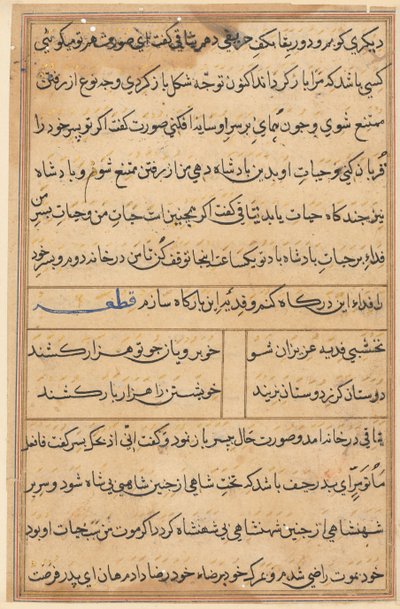 دیکری کو مرو دور یقا بکف حریفی دهر یتاقی کفت ای صورت هر تو میکوئی
کسی باشد که ترا باز کرداند اکنون توجه شکل باز کردی و چه نوع از رفتن
ممتنع شوی و چون همای بر سر او سایه افکنی صورت کفت اکر تو پسر خود را
قربان کنی و حیات او بدین بادشاه دهی من از رفتن ممتنع شوم و بادشاه
نیز چند کاه حیات یابد یتاقی کفت اکر همچنین است حیات من و حیات پسر من
فداء بر حیات بادشاه باد تو یکساعت اینجا توقف کن تا من در خانه دوم و پسر خود
را فداء این درکاه کنم و فدیه این بارکاه سازم قطعه
نخشبی فدیه عزیزان شو خوبرویان جو تو هزار کشند
دوستان کر ز دوستان برند خویشتن را هزار بار کشند
یتاقی در خانه امد و صورت حال بپسر باز نمود و کفت انی اذبحک پسر کفت فافعل
ما تؤمر ای پدر حیف باشد که تخت شاهی از چنین شاهی بی شاه شود و سریر
شهنشاهی از چنین شهنشاهی بی شهنشاه کردد اکر موت من سبب حیات او بود
خود بموت راضی شدم و مرک خود برضاء خود رضا دادم هان ای پدر فرصت